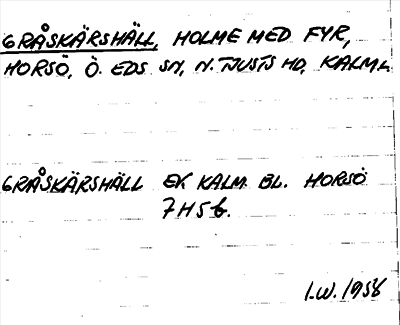 GRÅSKÄRSHÄLL, HOLME MED FYR,
HORSÖ, Ö. EDS SN, N. TJUSTS HD, KALM.L
GRÅSKÄRSHÄLL EK KALM. BL. HORSÖ
7H5b.
I.W. 1958